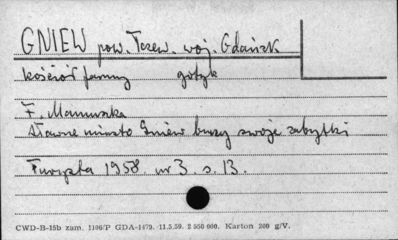 GNIEW pow. Tczew. woj. Gdańsk
kościół farny gotyk
F. Mamuszka
Sławne miasto Gniew burzy swoje zabytki
Turysta 1958. nr 3. s. 13.
CWD-B-15b zam. 1106/P GDA-1479. 11.5.59. 2 550 000. Karton 200 g/V.